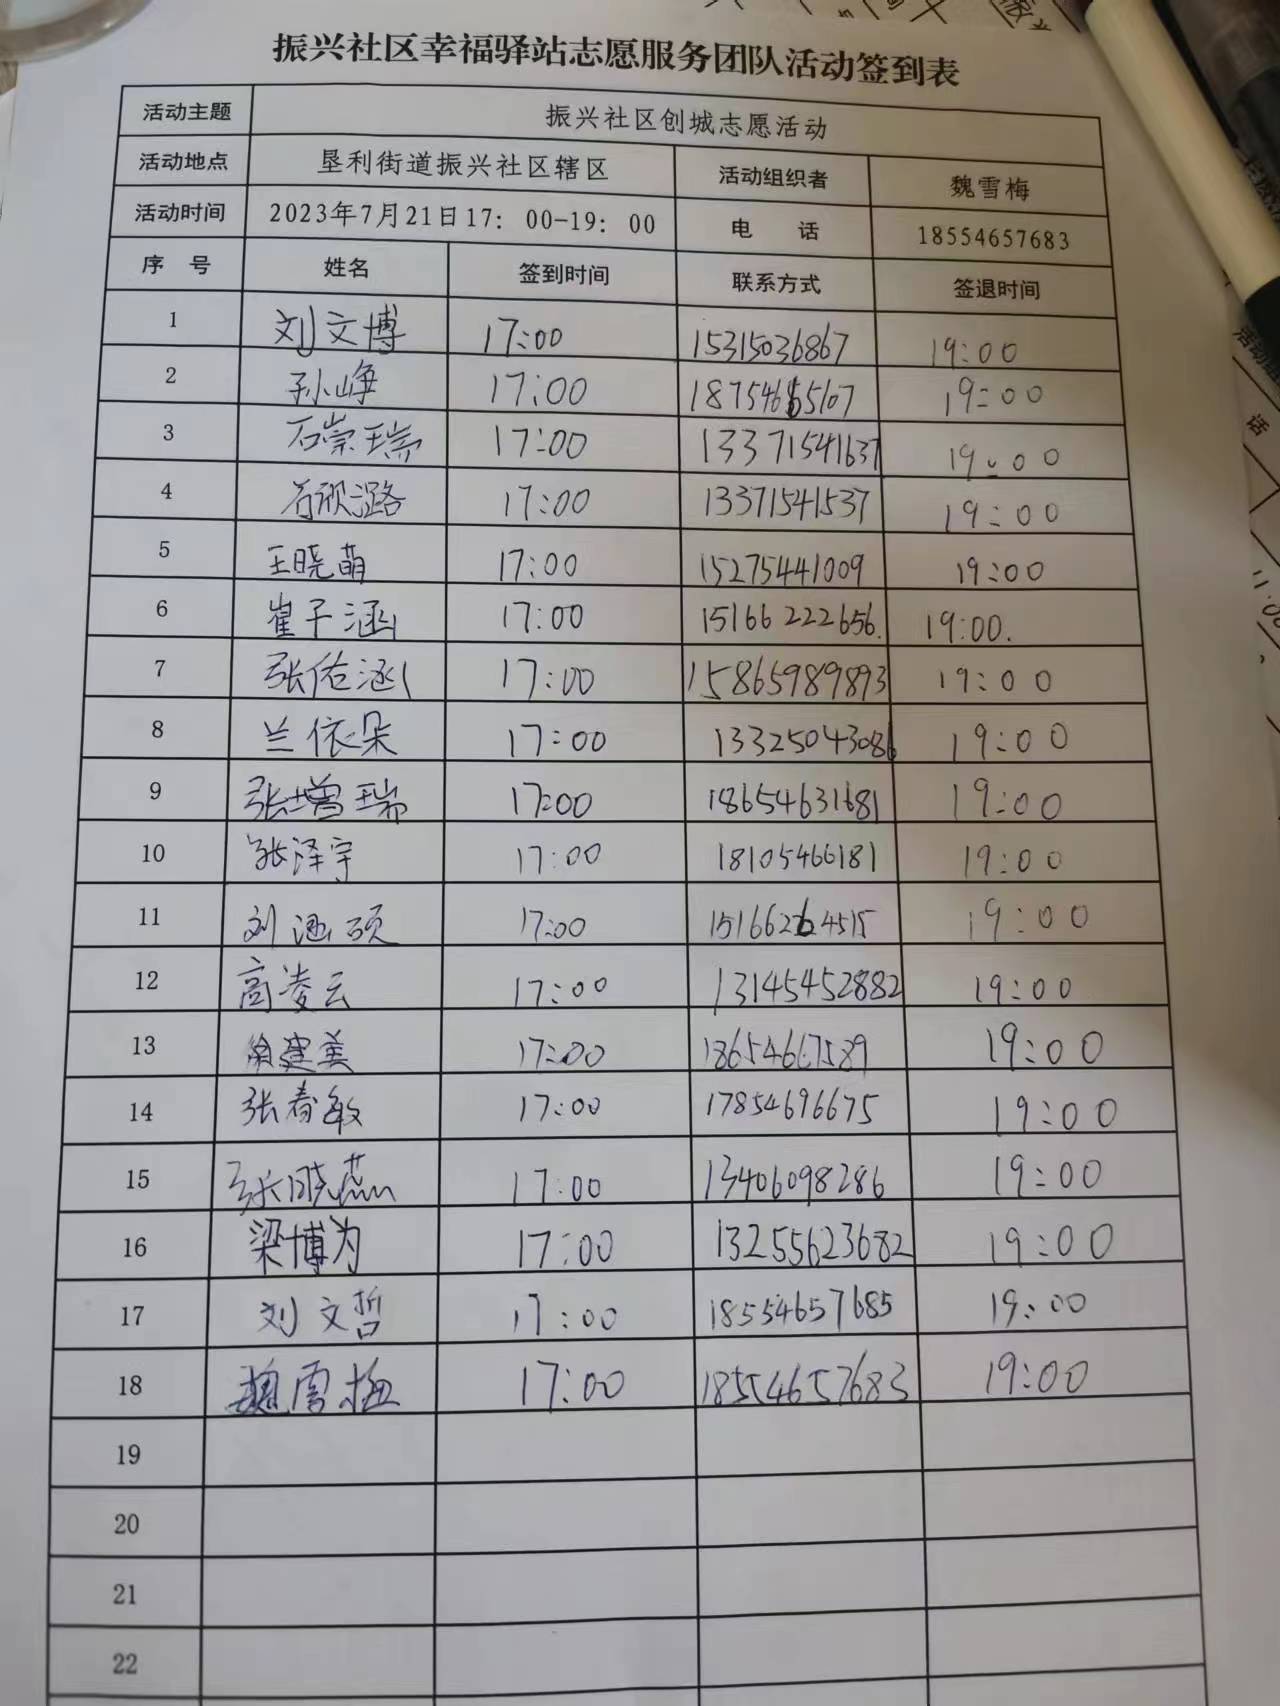 振兴社区幸福驿站志愿服务团队活动签到表
活动主题 振兴社区创城志愿活动
活动地点 垦利街道振兴社区辖区 活动组织者 魏雪梅
活动时间 2023年7月21日17：00-19：00 电 话 18554657683
序 号 姓名 签到时间 联系方式 签退时间
1 刘文博 17:00 15315036867 19:00
2 孙峥 17:00 19:00
3 石崇瑞 17:00 13371541637 19:00
4 17:00 13371541537 19:00
5 王晓萌 17:00 15275441009 19:00
6 崔子涵 17:00 15166222656. 19:00.
7 张佑涵 17:00 15865989893 19:00
8 兰依朵 17:00 13325043086 19:00
9 张增瑞 17:00 18654631681 19:00
10 张泽宇 17:00 18105466181 19:00
11 刘涵硕 17:00 19:00
12 高凌云 17:00 13145452882 19:00
13 17:00 18654667589 19:00
14 张春敏 17:00 17854696675 19:00
15 张晓燕 17:00 13406098286 19:00
16 梁博为 17:00 13255623682 19:00
17 刘文哲 17:00 18554657685 19:00
18 魏雪梅 17:00 18554657683 19:00
19
20
21
22
话